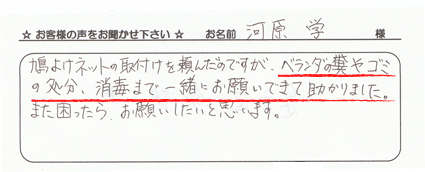 ☆ お客様の声をお聞かせ下さい ☆ お名前 河原 学 様
鳩よけネットの取付けを頼んだのですが、ベランダの糞やゴミ
の処分、消毒まで一緒にお願いできて助かりました。
また困ったら、お願いしたいと思います。